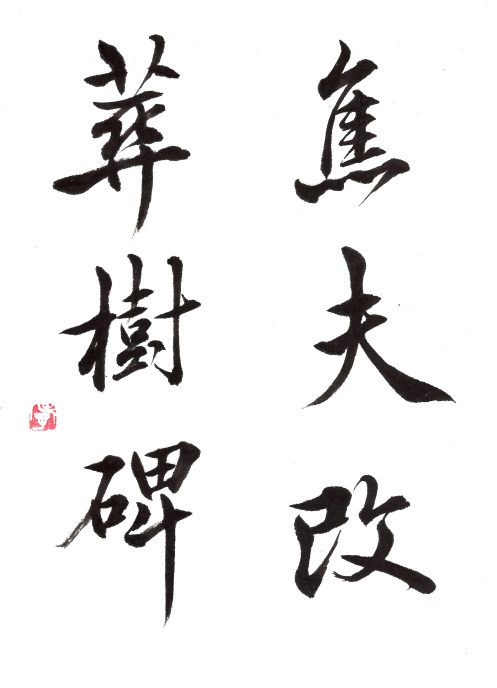 焦夫改
葬樹碑